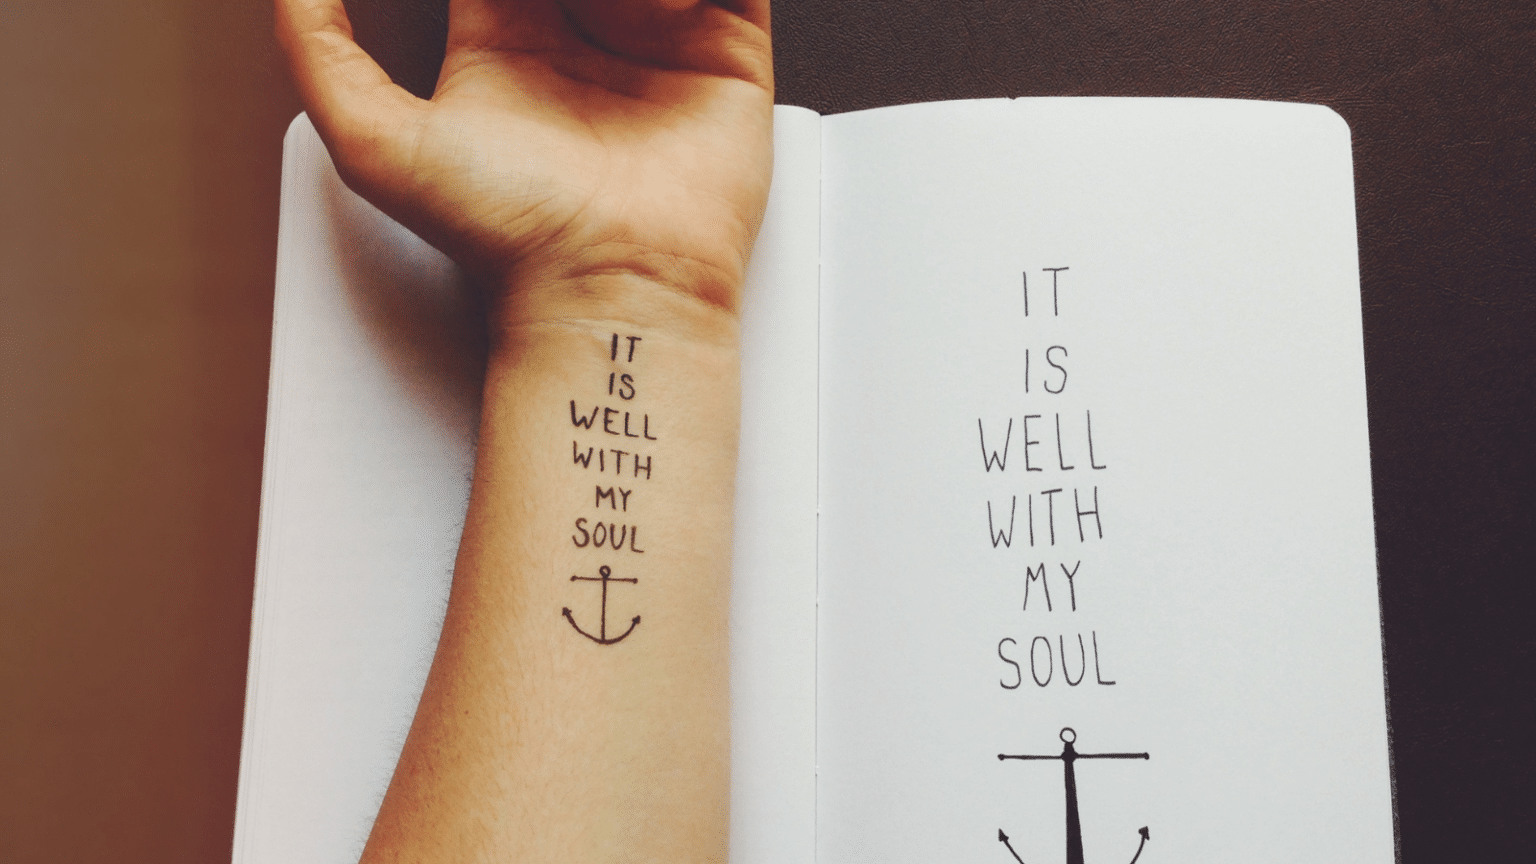 IT
IS
WELL
WITH
MY
SOUL
IT
IS
WELL
WITH
MY
SOUL